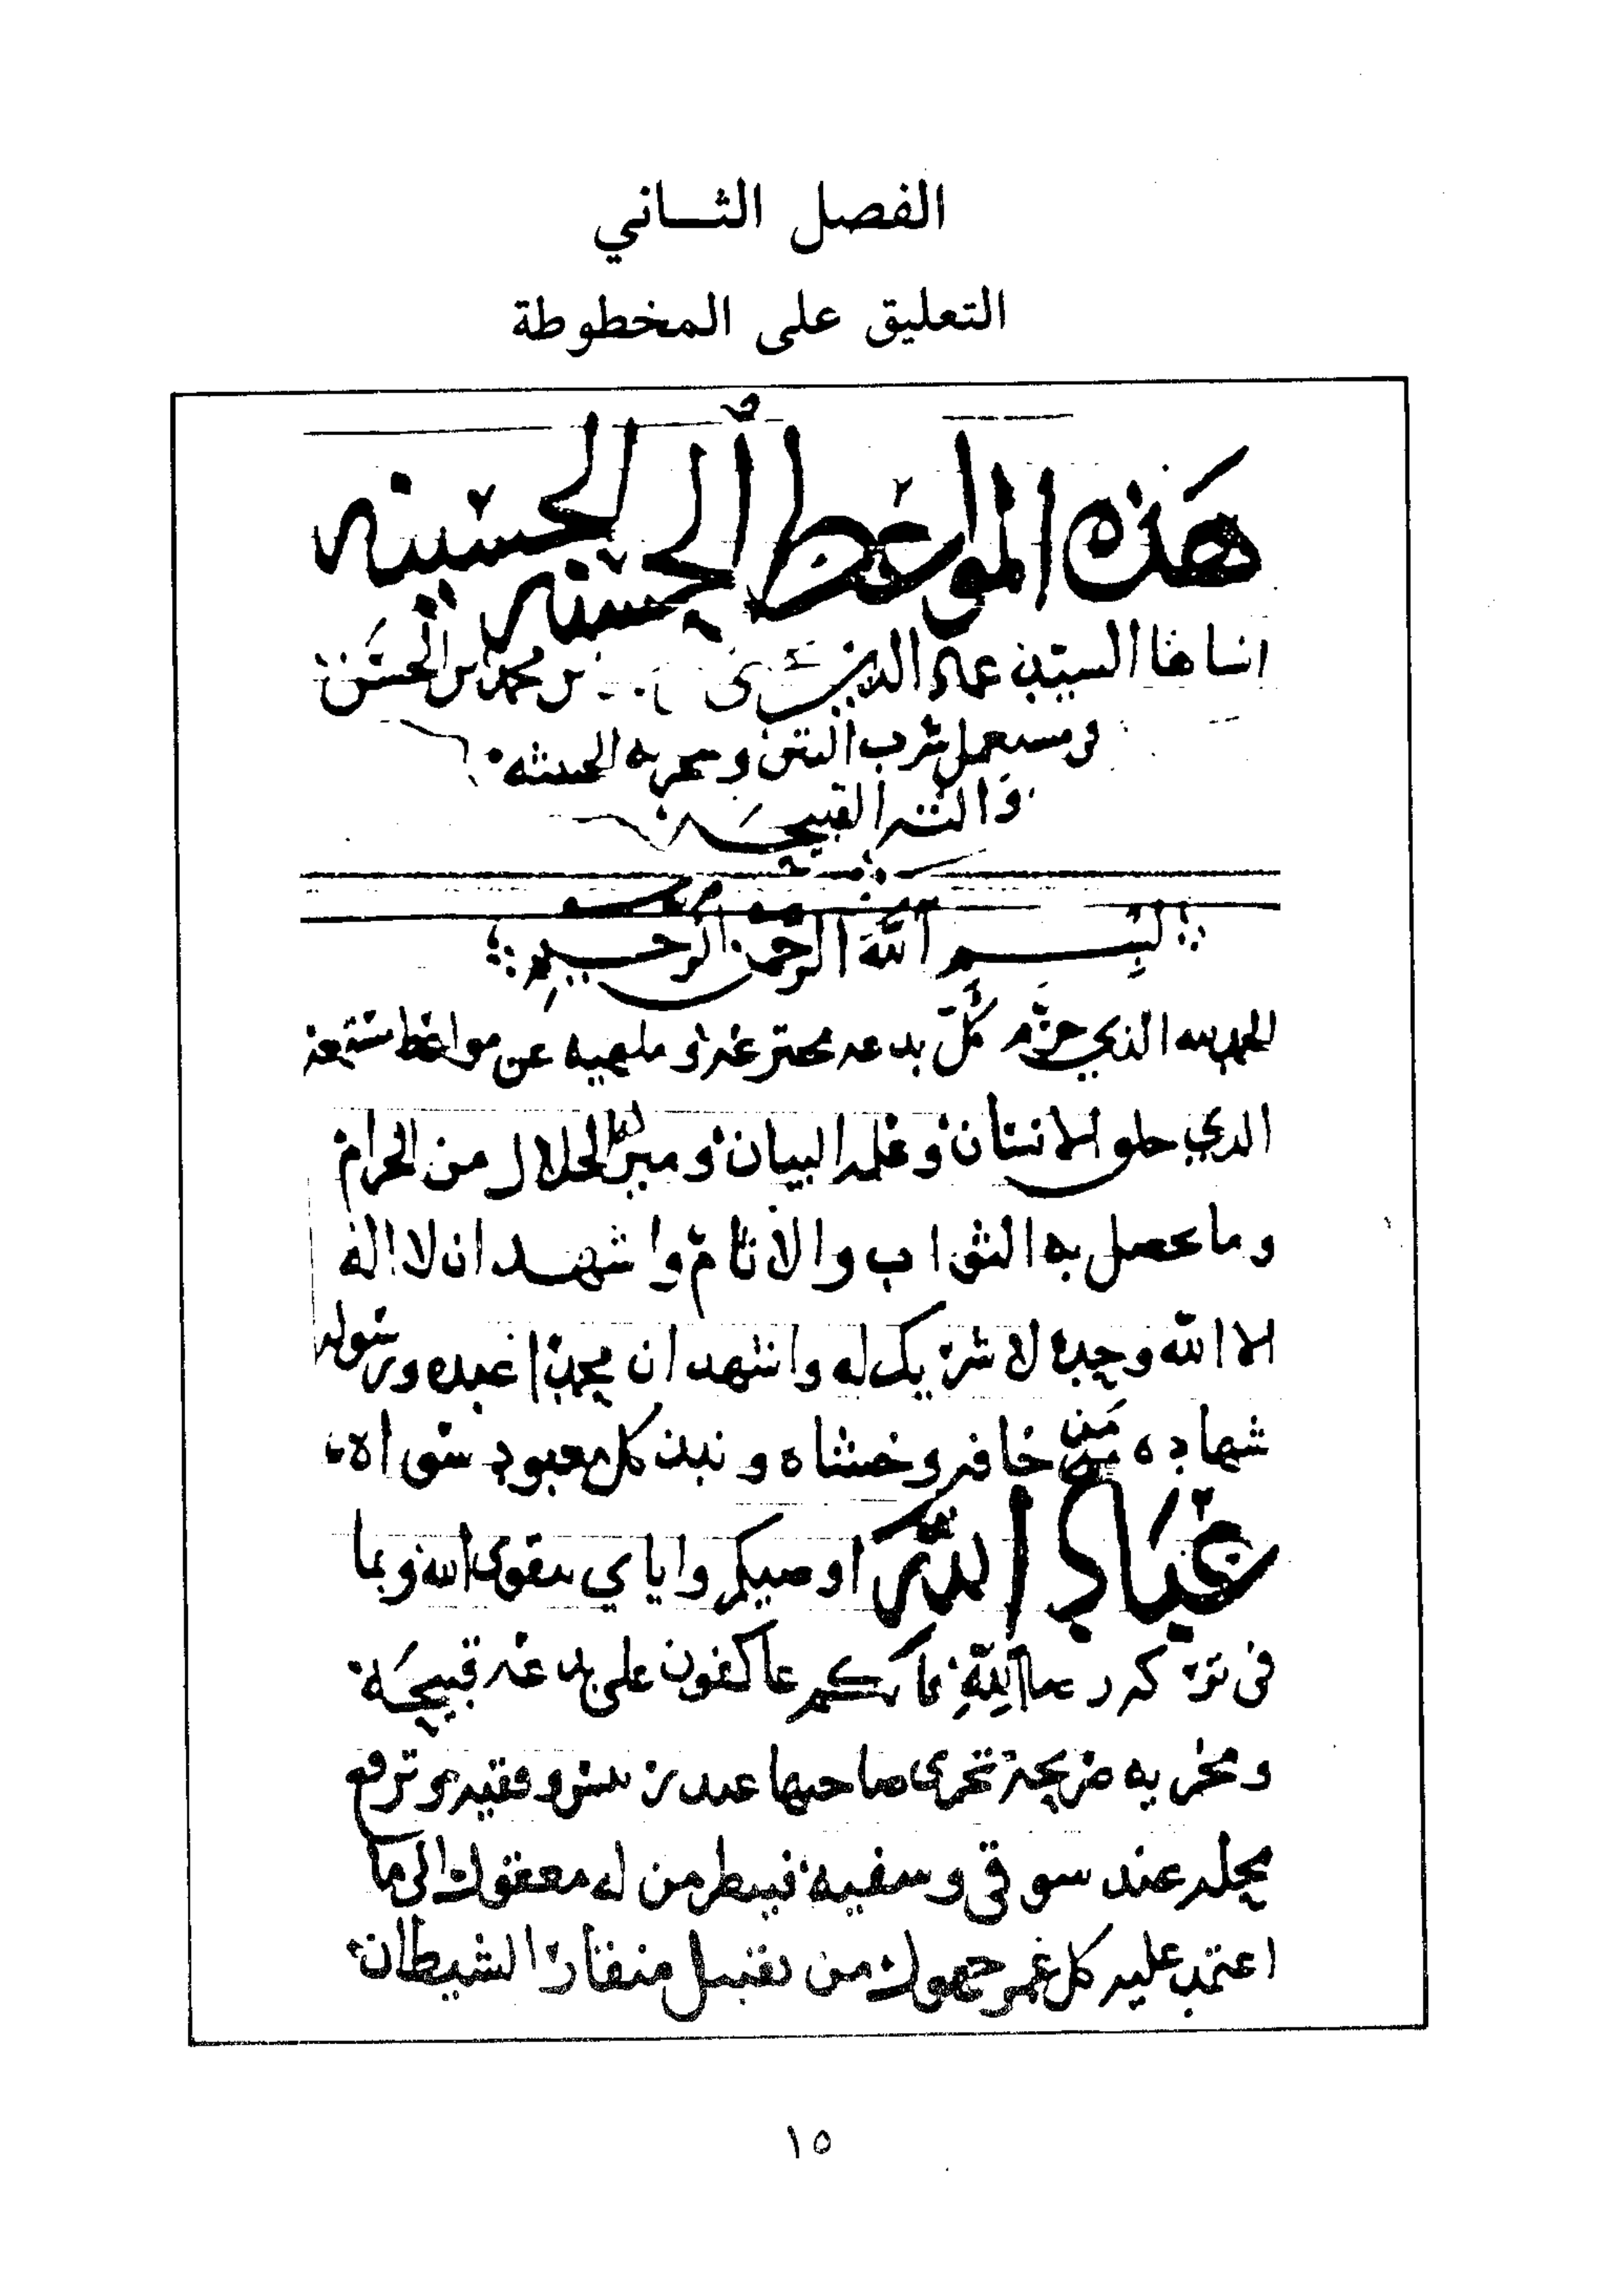 الفصل الثاني
التعليق على المخطوطة
هذه المواعظ الحسنه الحسينه
انشاها السيد عماد الدين يحيى بن محمد ابن الحسن
في مستعمل شرب التتن وشجرته الخبيثه
والتتن القبيحه
بسم الله الرحمن الرحيم
الحمد لله الذي حرم كل بدعه مخترعه وملهيه عن مواعظ مستمعه
الذي خلق الانسان وعلمه البيان وميز لنا الحلال من الحرام
وما يحصل به الثواب والآثام واشهد ان لا اله
الا الله وحده لا شريك له واشهد ان محمدا عبده ورسوله
شهادة من خافه وخشاه ونبذ كل معبود سواه
عباد الله اوصيكم واياي بتقوى الله وبما
في تركه رضا الله فانكم عاكفون على بدعه قبيحه
ومخزيه صريحه تخزى صاحبها عند وفقيه وترفع
محله عند سوقي وسفيه فينظر من له معقول الى ما
اعتمد عليه كل غمر جهول من تقبيل منقار الشيطان
١٥